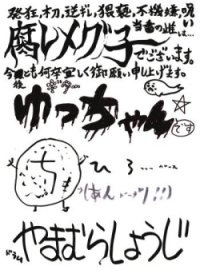 発狂、木刀、逆ギレ、猥褻、不機嫌、呪い
当番の雌は…
腐レメグ子
でございます。
今後とも何卒宜しく御願い申し上げます。
ゆっちゃん
です
ち
ひろ…
(あんどーなつ!!)
やまむらしょうじ